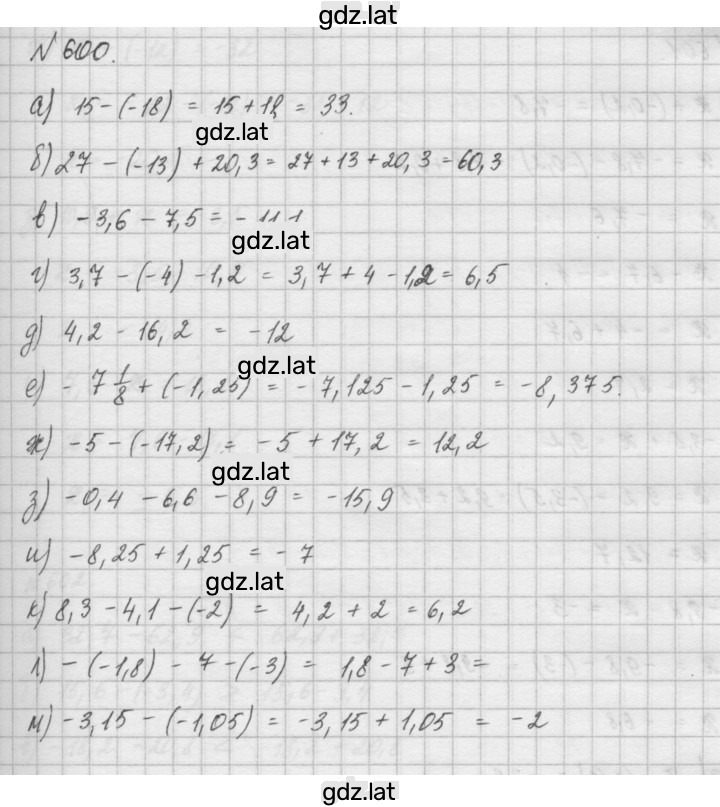 gdz.lat
№ 600.
а) 15 - (-18) = 15 + 18 = 33.
gdz.lat
б) 27 - (-13) + 20,3 = 27 + 13 + 20,3 = 60,3
в) -3,6 - 7,5 = - 11,1
gdz.lat
г) 3,7 - (-4) - 1,2 = 3,7 + 4 - 1,2 = 6,5
д) 4,2 - 16,2 = -12
gdz.lat
е) - 7 1/8 + (-1,25) = - 7,125 - 1,25 = -8,375.
ж) -5 - (-17,2) = -5 + 17,2 = 12,2
gdz.lat
з) -0,4 - 6,6 - 8,9 = -15,9
и) -8,25 + 1,25 = - 7
gdz.lat
к) 8,3 - 4,1 - (-2) = 4,2 + 2 = 6,2
л) - (-1,8) - 7 - (-3) = 1,8 - 7 + 3 =
м) -3,15 - (-1,05) = -3,15 + 1,05 = -2
gdz.lat